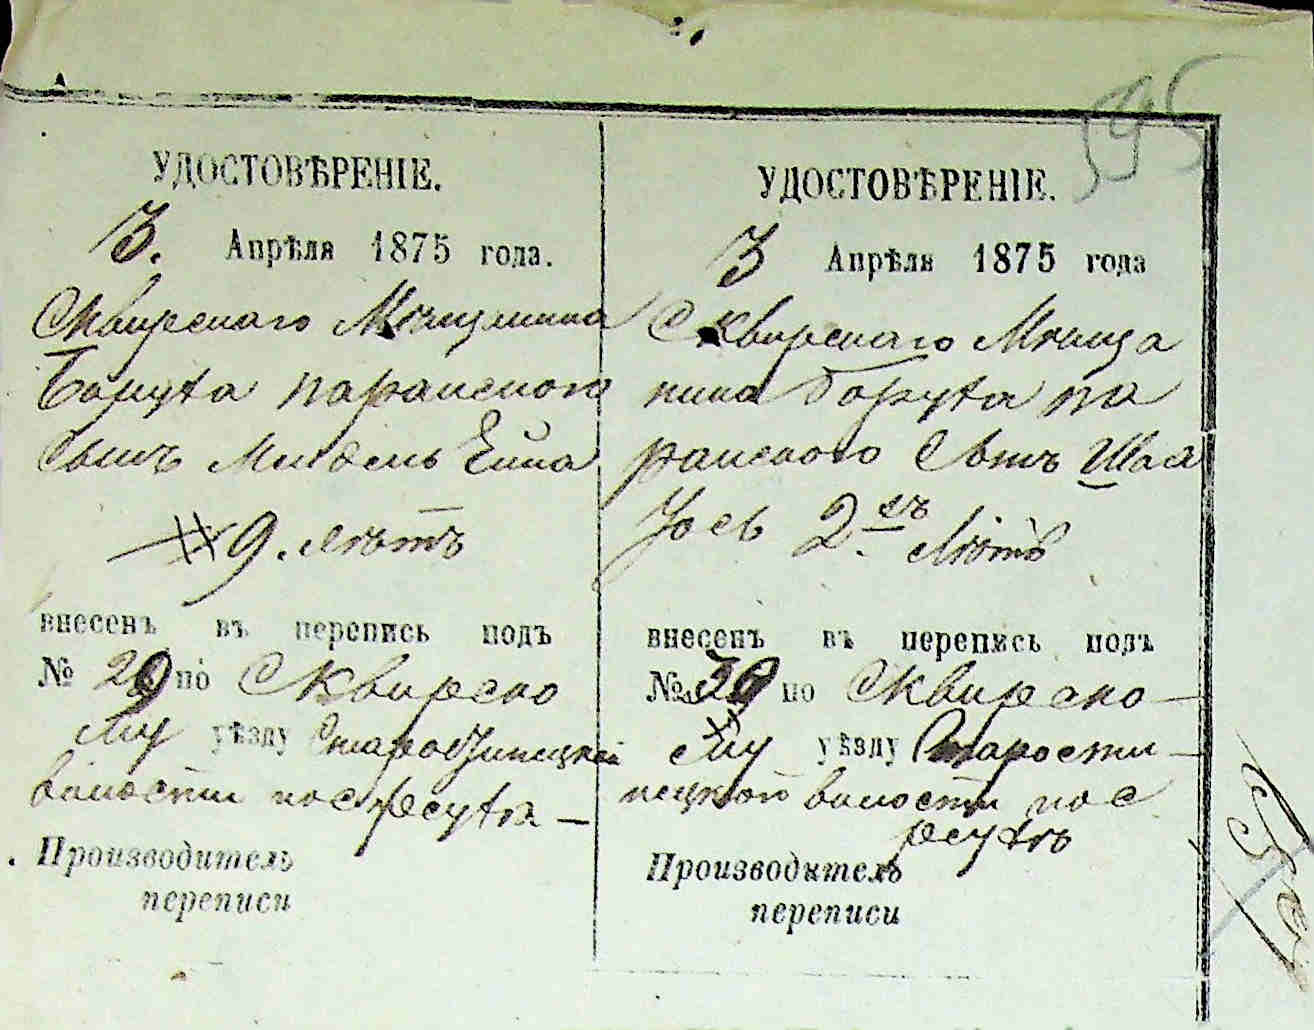 595
УДОСТОВѢРЕНІЕ.
3. Апрѣля 1875 года.
Сквирскаго Мѣщанина
Боруха паранскаго
Сынъ Мендель
9. лѣтъ
внесенъ въ перепись подъ
№ 20 по Сквирско
му уѣзду
волости
Производитель
переписи
УДОСТОВѢРЕНІЕ.
3 Апрѣля 1875 года
Сквирскаго Мѣща
нина Боруха па
ранского Сынъ
2хъ Лѣтъ
внесенъ въ перепись подъ
№ по Сквирско–
му уѣзду Старости–
нецкой волости
Производитель
переписи